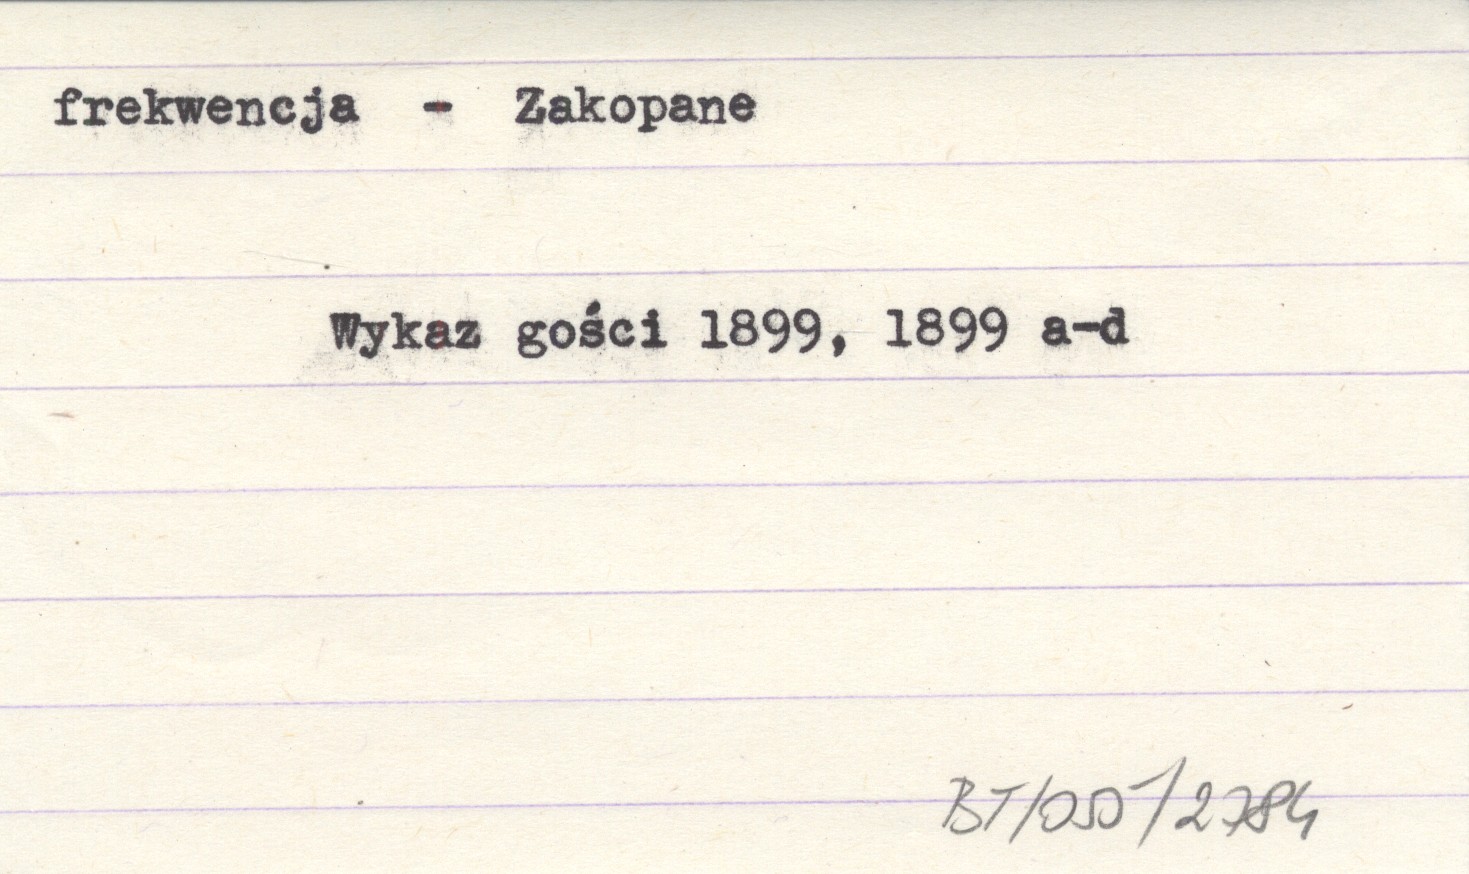 frekwencja - Zakopane
Wykaz gości 1899, 1899 a-d
BT/OSD/2784